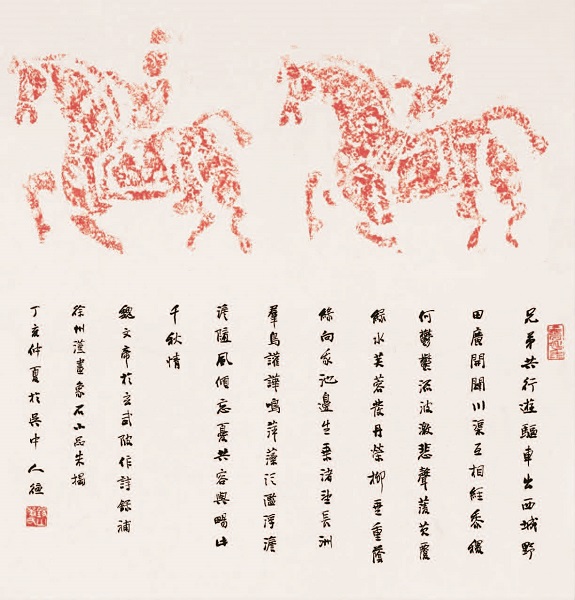 兄弟共行遊驅車出西城野
田廣開闢川渠互相經黍稷
何鬱鬱流波激悲聲菱芡覆
綠水芙蓉發丹榮柳垂重蔭
綠向我池邊生乘渚望長洲
羣鳥讙譁鳴萍藻泛濫浮澹
澹隨風傾忘憂共容與暢此
千秋情
魏文帝於玄武陂作詩錄補
徐州漢畫象石小品朱搨
丁亥仲夏於吳中人